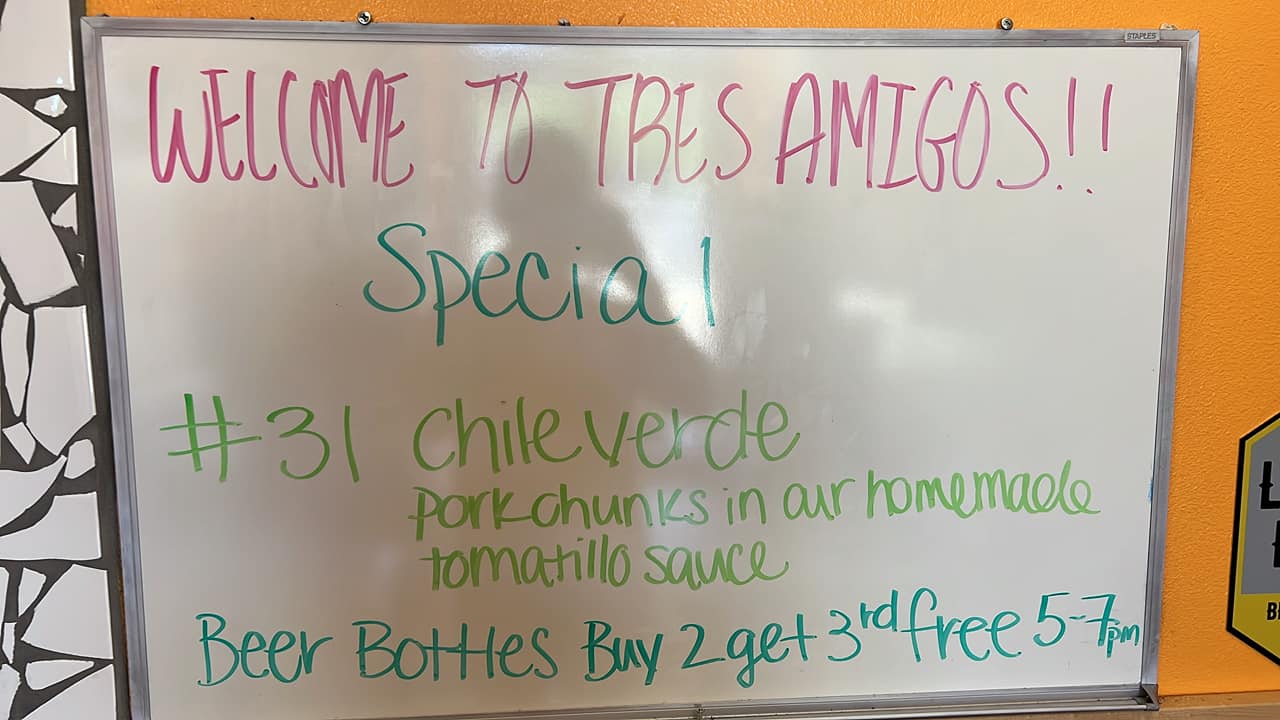 STAPLES
WELCOME TO TRES AMIGOS!!
Special
#31 Chile verde
pork chunks in our homemade
tomatillo sauce
Beer Bottles Buy 2 get 3rd free 5-7pm